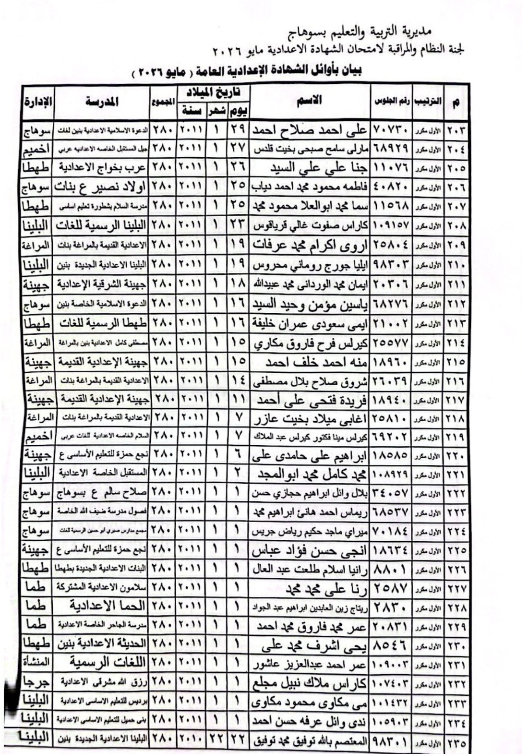 مديرية التربية والتعليم بسوهاج
لجنة النظام والمراقبة لامتحان الشهادة الاعدادية مايو ٢٠٢٦
بيان بأوائل الشهادة الإعدادية العامة ( مايو ٢٠٢٦ )
م الترتيب رقم الجلوس الاسم تاريخ الميلاد المجموع المدرسة الإدارة
يوم شهر سنة
٢٠٣ الأول مكرر ٧٠٧٣٠ على احمد صلاح احمد ٢٩ ١ ٢٠١١ ٢٨٠ الدعوة الاسلامية الاعدادية بنين لغات سوهاج
٢٠٤ الأول مكرر ٦٨٩٢٩ مارلى سامح صبحى بخيت قلدس ٢٧ ١ ٢٠١١ ٢٨٠ جيل المستقبل الخاصه الاعداديه عربي اخميم
٢٠٥ الأول مكرر ١١٠٧٦ جنا علي علي السيد ٢٦ ١ ٢٠١١ ٢٨٠ عرب بخواج الاعدادية طهطا
٢٠٦ الأول مكرر ٤٠٨٢٠ فاطمه محمود محمد احمد دياب ٢٥ ١ ٢٠١١ ٢٨٠ اولاد نصير ع بنات سوهاج
٢٠٧ الأول مكرر ١١٥٦٨ سما محمد ابوالعلا محمود محمد ٢٥ ١ ٢٠١١ ٢٨٠ مدرسة السلام بشطورة تعليم اساسى طهطا
٢٠٨ الأول مكرر ١٠٩١٥٧ كاراس صفوت غالي قرياقوس ٢٣ ١ ٢٠١١ ٢٨٠ البلينا الرسمية للغات البلينا
٢٠٩ الأول مكرر ٢٥٨٠٤ اروى اكرام محمد عرفات ١٩ ١ ٢٠١١ ٢٨٠ الاعدادية القديمة بالمراغة بنات المراغة
٢١٠ الأول مكرر ٩٨٣٠٣ ايليا جورج روماني محروس ١٩ ١ ٢٠١١ ٢٨٠ البلينا الاعدادية الجديدة بنين البلينا
٢١١ الأول مكرر ٢٠٣٠٦ ايمان محمد الورداني محمد عبيدالله ١٨ ١ ٢٠١١ ٢٨٠ جهينة الشرقية الإعدادية جهينة
٢١٢ الأول مكرر ٦٨٢٧٦ ياسين مؤمن وحيد السيد ١٦ ١ ٢٠١١ ٢٨٠ الدعوة الاسلامية الخاصة بنين سوهاج
٢١٣ الأول مكرر ٢١٠٠٢ ايمى سعودى عمران خليفة ١٦ ١ ٢٠١١ ٢٨٠ طهطا الرسمية للغات طهطا
٢١٤ الأول مكرر ٢٥٥٧٧ كيرلس فرح فاروق مكاري ١٥ ١ ٢٠١١ ٢٨٠ مصطفى كامل الاعدادية بنين بالمراغة المراغة
٢١٥ الأول مكرر ١٨٩٦٠ منه احمد خلف احمد ١٥ ١ ٢٠١١ ٢٨٠ جهينة الإعدادية القديمة جهينة
٢١٦ الأول مكرر ٢٦٠٣٩ شروق صلاح بلال مصطفى ١٤ ١ ٢٠١١ ٢٨٠ الاعدادية القديمة بالمراغة بنات المراغة
٢١٧ الأول مكرر ١٨٩٤٠ فريدة فتحى علي أحمد ١١ ١ ٢٠١١ ٢٨٠ جهينة الإعدادية القديمة جهينة
٢١٨ الأول مكرر ٢٥٨١٠ اغابى ميلاد بخيت عازر ٧ ١ ٢٠١١ ٢٨٠ الاعدادية القديمة بالمراغة بنات المراغة
٢١٩ الأول مكرر ٦٩٢٠٢ كيرلس مينا فكتور كيرلس عبد الملاك ٧ ١ ٢٠١١ ٢٨٠ السلام الخاصه الاعدادية اللغات عربى اخميم
٢٢٠ الأول مكرر ١٨٥٨٥ ابراهيم على حامدى على ٦ ١ ٢٠١١ ٢٨٠ نجع حمزة للتعليم الأساسى ع جهينة
٢٢١ الأول مكرر ١٠٨٩٢٩ محمد كامل محمد ابوالمجد ٢ ١ ٢٠١١ ٢٨٠ المستقبل الخاصة الاعدادية البلينا
٢٢٢ الأول مكرر ٣٤٠٥٧ بلال وائل ابراهيم حجازي حسن ١ ١ ٢٠١١ ٢٨٠ صلاح سالم ع بسوهاج سوهاج
٢٢٣ الأول مكرر ٦٨٥٣٧ ريماس احمد هانئ ابراهيم محمد ١ ١ ٢٠١١ ٢٨٠ فصول مدرسة ضيف الله الخاصة سوهاج
٢٢٤ الأول مكرر ٧٠١٨٤ ميراي ماجد حكيم رياض جريس ١ ١ ٢٠١١ ٢٨٠ مجمع مدارس صبري ابو حسين الرسمية للغات سوهاج
٢٢٥ الأول مكرر ١٨٦٣٤ انجى حسن فؤاد عباس ١ ١ ٢٠١١ ٢٨٠ نجع حمزة للتعليم الأساسى ع جهينة
٢٢٦ الأول مكرر ٨٨٠١ رانيا اسلام طلعت عبد العال ١ ١ ٢٠١١ ٢٨٠ البنات الاعدادية الجديدة بطهطا طهطا
٢٢٧ الأول مكرر ٢٥٨٧ رنا على محمد محمد ١ ١ ٢٠١١ ٢٨٠ سلامون الاعدادية المشتركة طما
٢٢٨ الأول مكرر ٢٨٣٠ ريتاج زين العابدين ابراهيم عبد الجواد ١ ١ ٢٠١١ ٢٨٠ الحما الاعدادية طما
٢٢٩ الأول مكرر ٢٠٨٣١ عمر محمد فاروق محمد احمد ١ ١ ٢٠١١ ٢٨٠ مدرسة الجاحر الخاصة الاعدادية طما
٢٣٠ الأول مكرر ٨٥٤٦ يحى اشرف محمد على ١ ١ ٢٠١١ ٢٨٠ الحديثة الاعدادية بنين طهطا
٢٣١ الأول مكرر ١٠٩٠٠٣ عمر احمد عبدالعزيز عاشور ١ ١ ٢٠١١ ٢٨٠ اللغات الرسمية المنشأة
٢٣٢ الأول مكرر ١٠٧٤٠٣ كاراس ملاك نبيل مجلع ١ ١ ٢٠١١ ٢٨٠ رزق الله مشرقى الاعدادية جرجا
٢٣٣ الأول مكرر ١٠١٤٣٢ مى مكاوى محمود مكاوى ١ ١ ٢٠١١ ٢٨٠ برديس للتعليم الاساسى الاعدادية البلينا
٢٣٤ الأول مكرر ١٠٥٩٠٣ ندى وائل عرفه حسن احمد ١ ١ ٢٠١١ ٢٨٠ بنى حميل للتعليم الاساسى الاعدادية البلينا
٢٣٥ الأول مكرر ٩٨٣٠١ المعتصم بالله توفيق محمد توفيق ٢٢ ٢٢ ٢٠١٠ ٢٨٠ البلينا الاعدادية الجديدة بنين البلينا